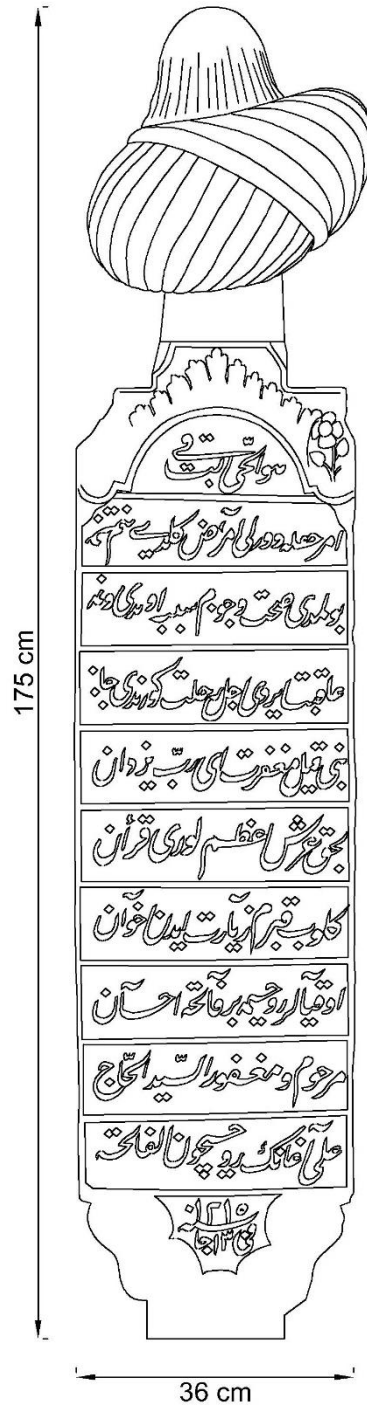 175 cm
هو الحی الباقی
امر حقله دورلی امراض کلدی
بولمدی صحت وجودم سبب اولدی
عاقبت ایردی اجل رحلت کوراندی
بنی قیل مغفرت ای ربّ یزدان
بحق عرش اعظم نوری قرآن
کلوب قبرم زیارت ایدن اخوان
اوقیالر روحمه بر فاتحه احسان
مرحوم و مغفور السّید الحّاج
علی آغانک روحیچون الفاتحه
سنه ١٢١٥
فی ١٣ جا
36 cm